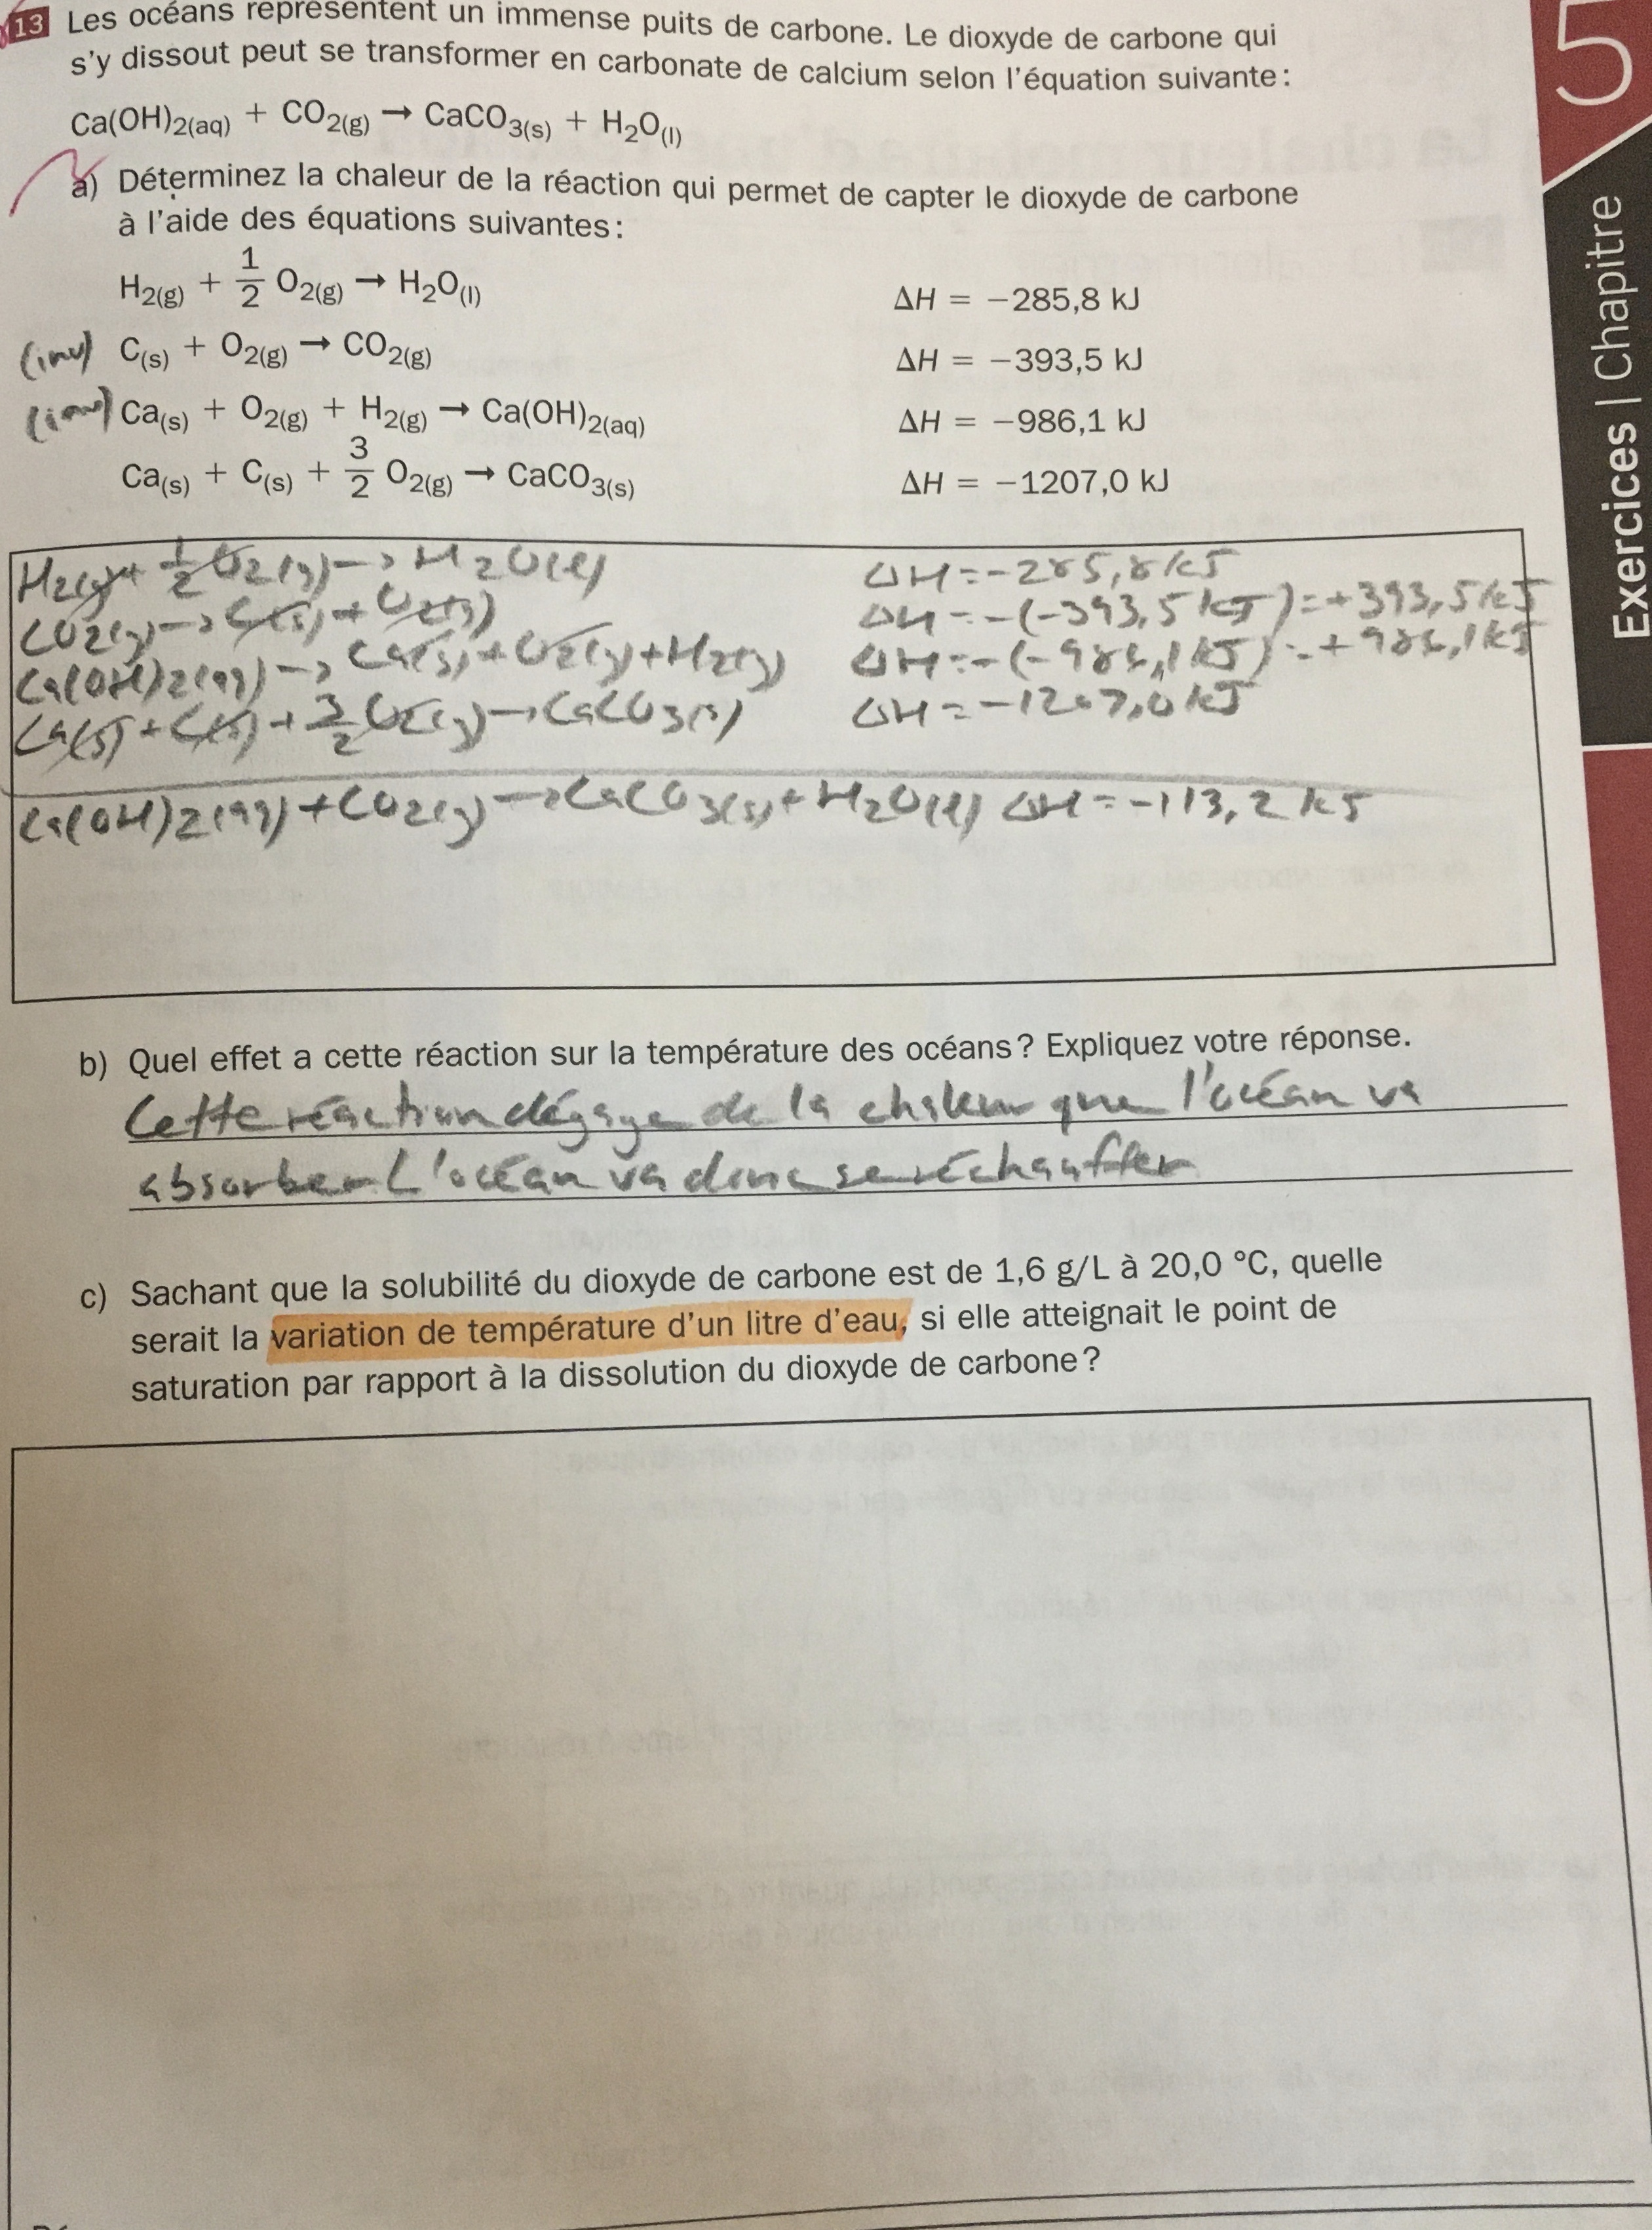 13 Les océans représentent un immense puits de carbone. Le dioxyde de carbone qui
s'y dissout peut se transformer en carbonate de calcium selon l'équation suivante:
Ca(OH)2(aq) + CO2(g) → CaCO3(s) + H2O(l)
a) Déterminez la chaleur de la réaction qui permet de capter le dioxyde de carbone
à l'aide des équations suivantes:
H2(g) + 1/2 O2(g) → H2O(l) ΔH = −285,8 kJ
(inv) C(s) + O2(g) → CO2(g) ΔH = −393,5 kJ
(inv) Ca(s) + O2(g) + H2(g) → Ca(OH)2(aq) ΔH = −986,1 kJ
Ca(s) + C(s) + 3/2 O2(g) → CaCO3(s) ΔH = −1207,0 kJ
H2(g) + 1/2 O2(g) → H2O(l) ΔH = −285,8 kJ
CO2(g) → C(s) + O2(g) ΔH = −(−393,5 kJ) = +393,5 kJ
Ca(OH)2(aq) → Ca(s) + O2(g) + H2(g) ΔH = −(−986,1 kJ) = +986,1 kJ
Ca(s) + C(s) + 3/2 O2(g) → CaCO3(s) ΔH = −1207,0 kJ
Ca(OH)2(aq) + CO2(g) → CaCO3(s) + H2O(l) ΔH = −113,2 kJ
b) Quel effet a cette réaction sur la température des océans? Expliquez votre réponse.
Cette réaction dégage de la chaleur que l'océan va
absorber. L'océan va donc se réchauffer
c) Sachant que la solubilité du dioxyde de carbone est de 1,6 g/L à 20,0 °C, quelle
serait la variation de température d'un litre d'eau, si elle atteignait le point de
saturation par rapport à la dissolution du dioxyde de carbone?
5
Exercices | Chapitre